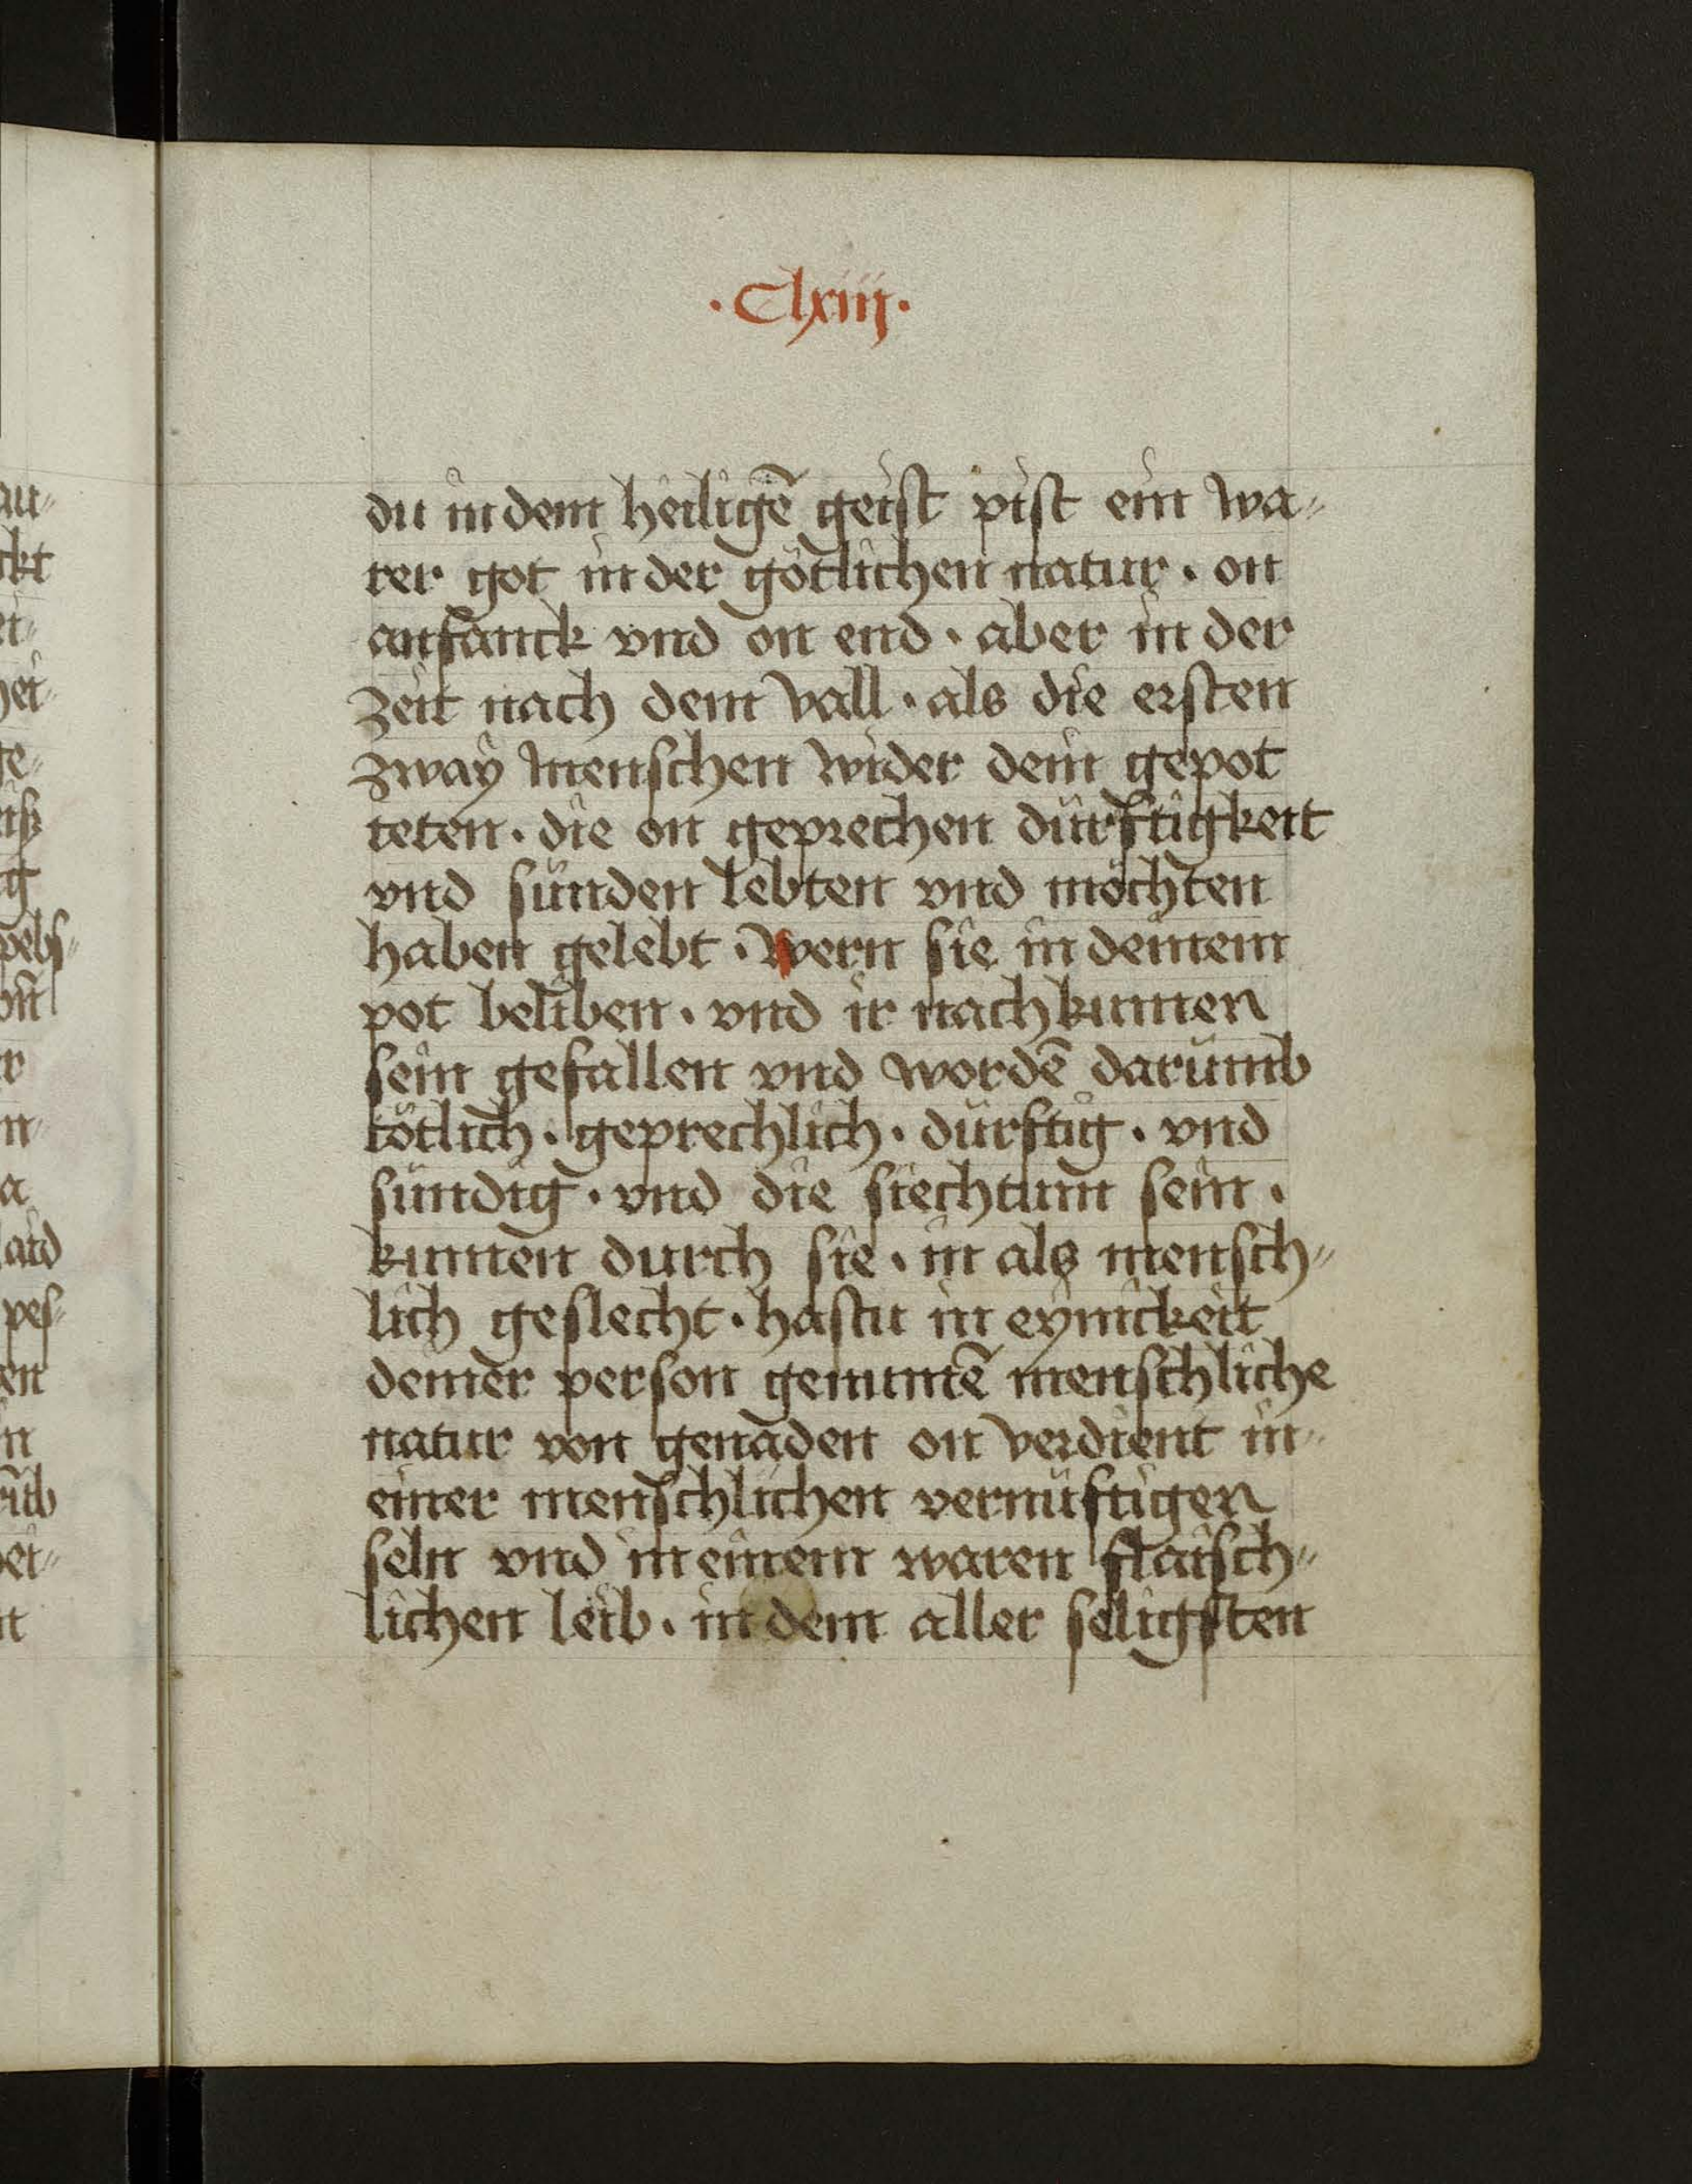 ·Clxiij·
du in dem heiligē geist pist ein wa⸗
rer got in der götlichen natur · on
anfanck vnd on end · aber in der
zeit nach dem vall · als die ersten
zway menschen wider dein gepot
teten · die on geprechen dürftigkeit
vnd sünden lebten vnd möchten
haben gelebt · wern sie in deinem
pot beliben · vnd ir nachkumen
sein gefallen vnd wordē darumb
tötlich · geprechlich · dürftig · vnd
sündig · vnd die siechtum sein ·
kumen durch sie · in als mensch⸗
lich geslecht · hastu in eynickeit
deiner person genumē menschliche
natur von genaden on verdient in
einer menschlichen vernüftigen
seln vnd in einem waren flaisch⸗
lichen leib · in dem aller seligsten